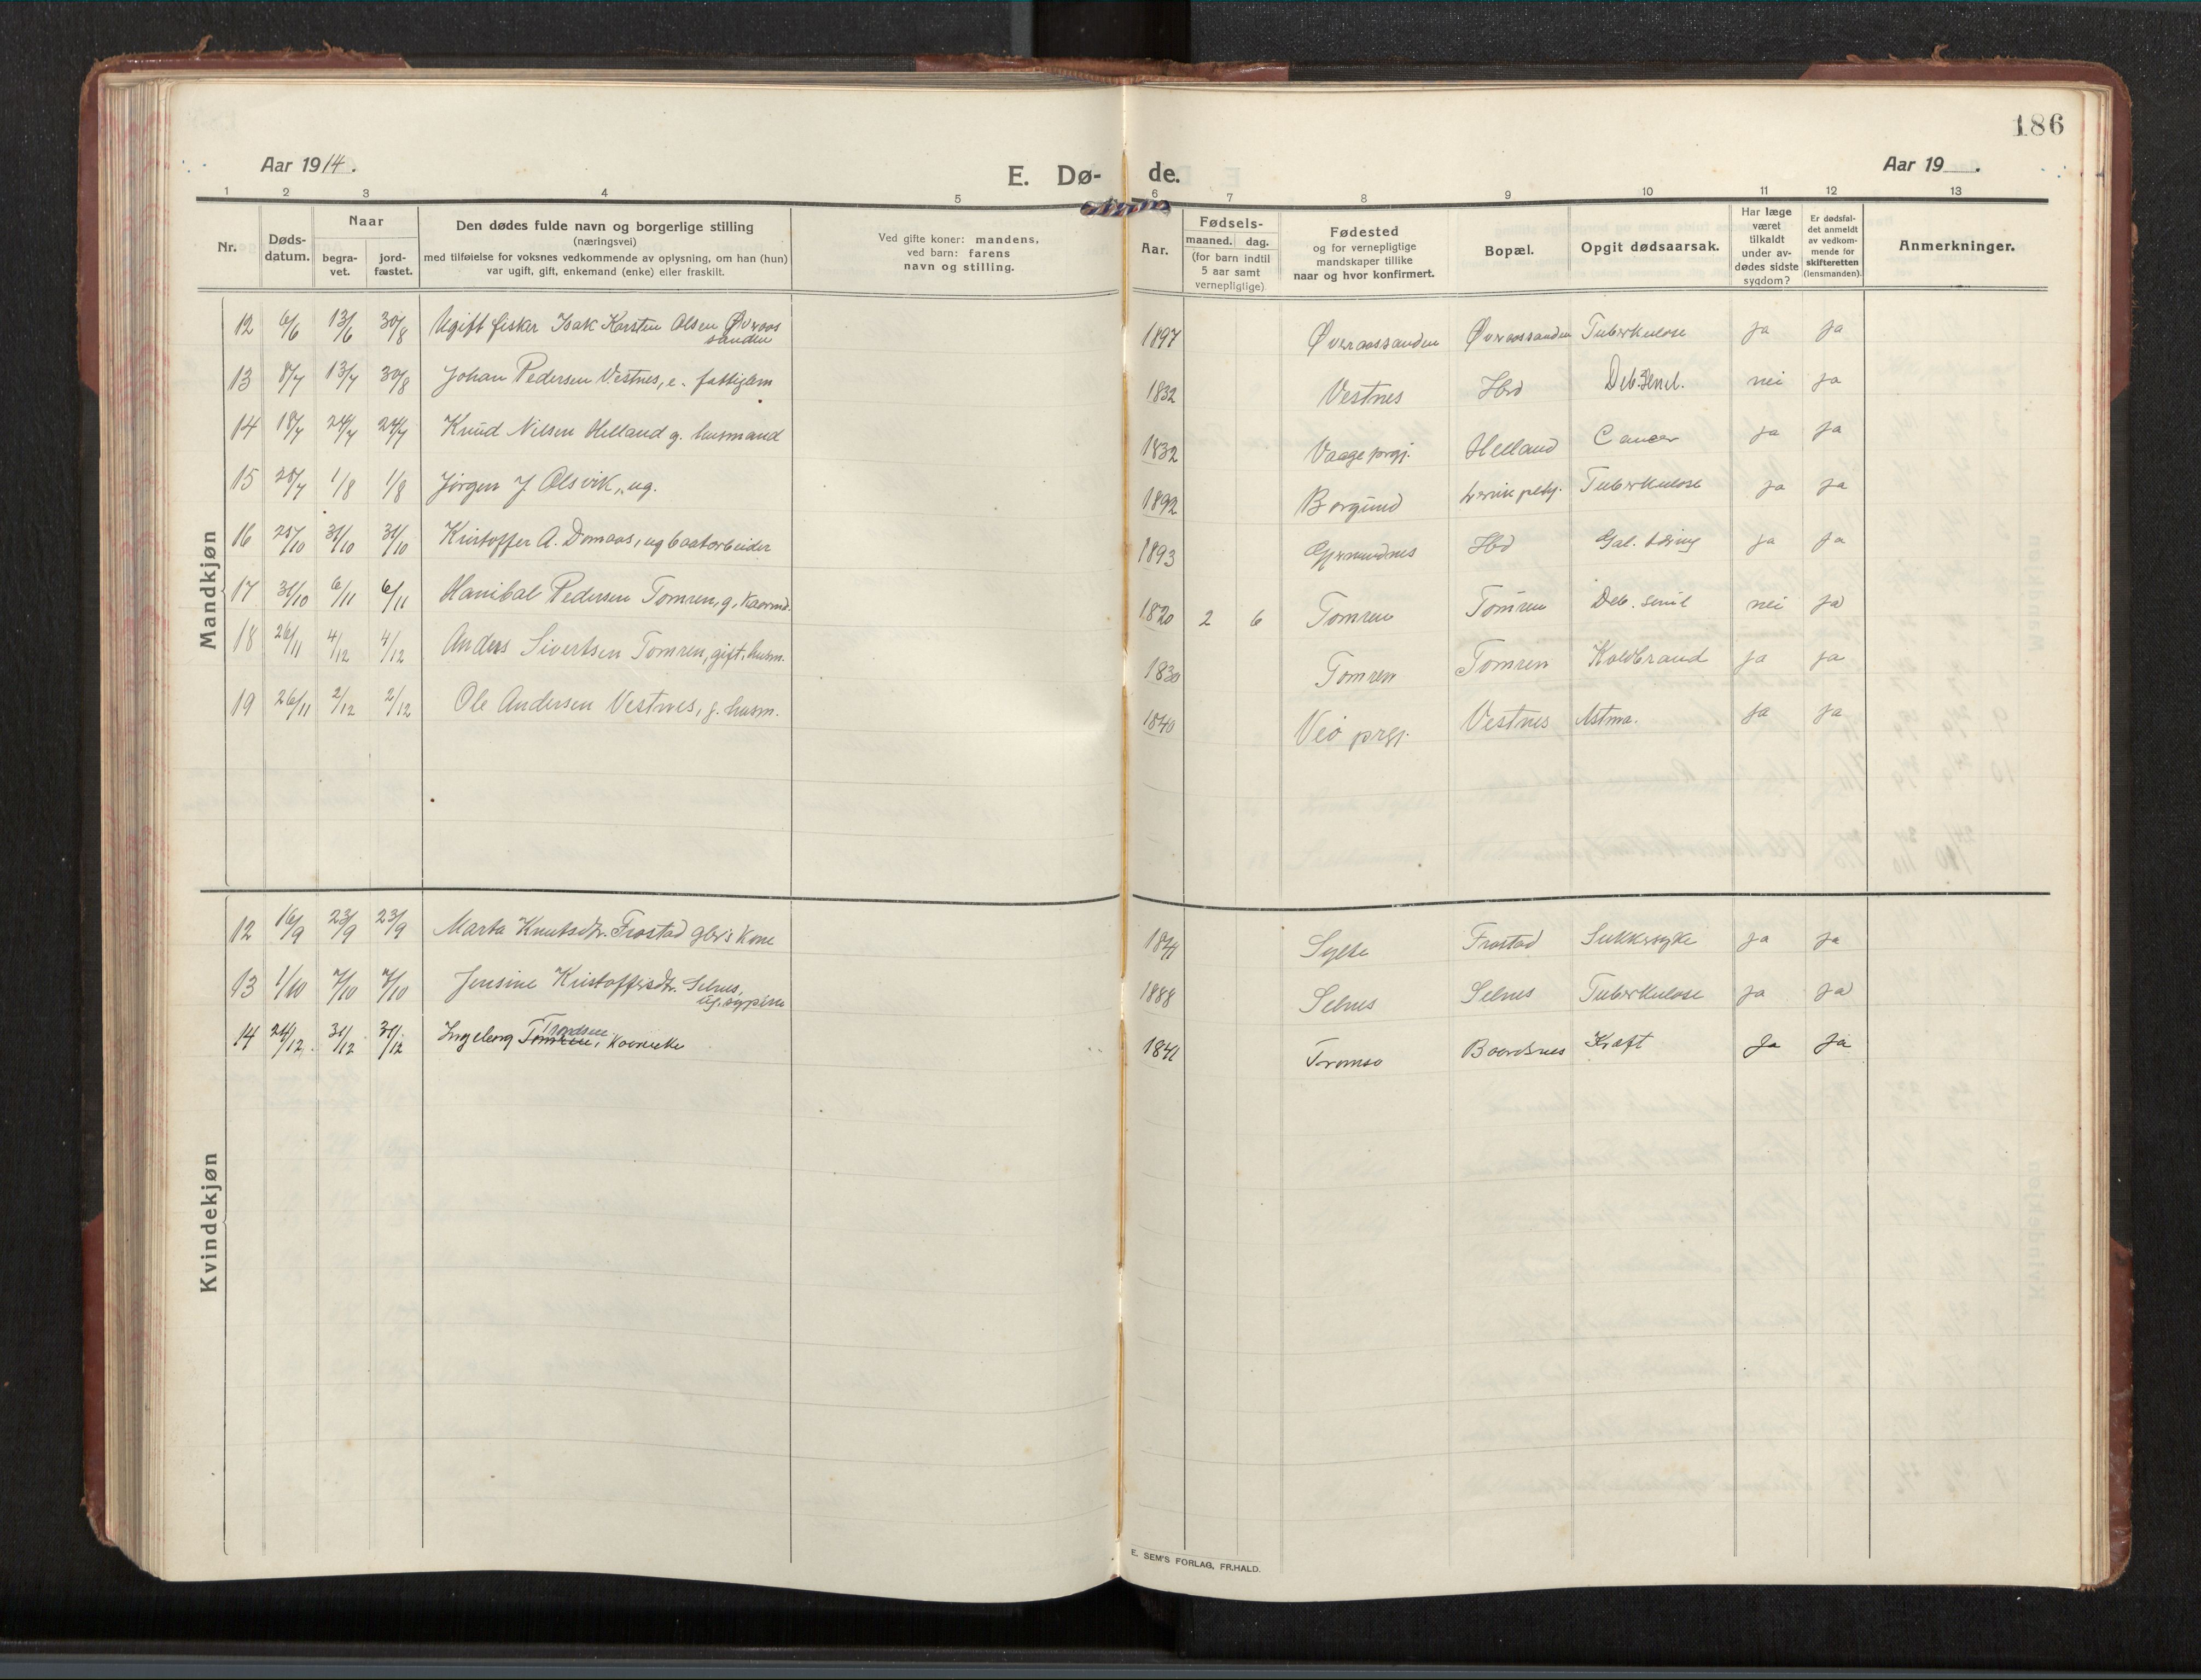 186
Aar 1914.
E. Dø- de.
Aar 19 .
1 2 3 4 5 6 7 8 9 10 11 12 13
Nr.
Døds-
datum.
Naar
begra-
vet.
jord-
fæstet.
Den dødes fulde navn og borgerlige stilling
(næringsvei)
med tilføielse for voksnes vedkommende av oplysning, om han (hun)
var ugift, gift, enkemand (enke) eller fraskilt.
Ved gifte koner: mandens,
ved barn: farens
navn og stilling.
Aar.
Fødsels-
maaned. dag.
(for barn indtil
5 aar samt
vernepligtige)
Fødested
og for vernepligtige
mandskaper tillike
naar og hvor konfirmert.
Bopæl.
Opgit dødsaarsak.
Har læge
været
tilkaldt
under av-
dødes sidste
sygdom?
Er dødsfal-
det anmeldt
av vedkom-
mende for
skifteretten
(lensmanden).
Anmerkninger.
Mandkjøn
12 6/6 13/6 30/8 Ugift fisker Isak Karsten Olsen Øveraas
sanden 1897 Øveraassanden Øveraassanden Tuberkulose ja ja
13 8/7 13/7 30/8 Johan Pedersen Vestnes, e. fattiglem 1832 Vestnes Ibid Deb. Senil. nei ja
14 18/7 24/7 24/7 Knud Nilsen Helland g. husmand 1832 Vaage prgj. Helland Cancer ja ja
15 28/7 1/8 1/8 Jørgen J. Olsvik, ug. 1892 Borgund Tuberkulose ja ja
16 25/10 31/10 31/10 Kristoffer A. Domaas, ug baatarbeider 1893 Gjermundnes Ibid Gal. tæring ja ja
17 31/10 6/11 6/11 Hanibal Pedersen Tomren, g. kaarmd. 1820 2 6 Tomren Tomren Deb. senil nei ja
18 26/11 4/12 4/12 Anders Sivertsen Tomren, gift. husm. 1830 Tomren Tomren Koldbrand ja ja
19 26/11 2/12 2/12 Ole Andersen Vestnes, g. husm. 1840 Veø prgj. Vestnes Astma. ja ja
Kvindekjøn
12 16/9 23/9 23/9 Marta Knutsdtr. Frostad gbr's kone 1841 Sylte Frostad Sukkersyke ja ja
13 1/10 7/10 7/10 Jensine Kristoffersdtr. Selnes,
ug. sypike 1888 Selnes Selnes Tuberkulose ja ja
Trondsen
14 24/12 31/12 31/12 Ingeborg Tomren, kaarenke 1841 Tromsø Baardsnes Kræft Ja Ja
E. SEM'S FORLAG, FR.HALD.